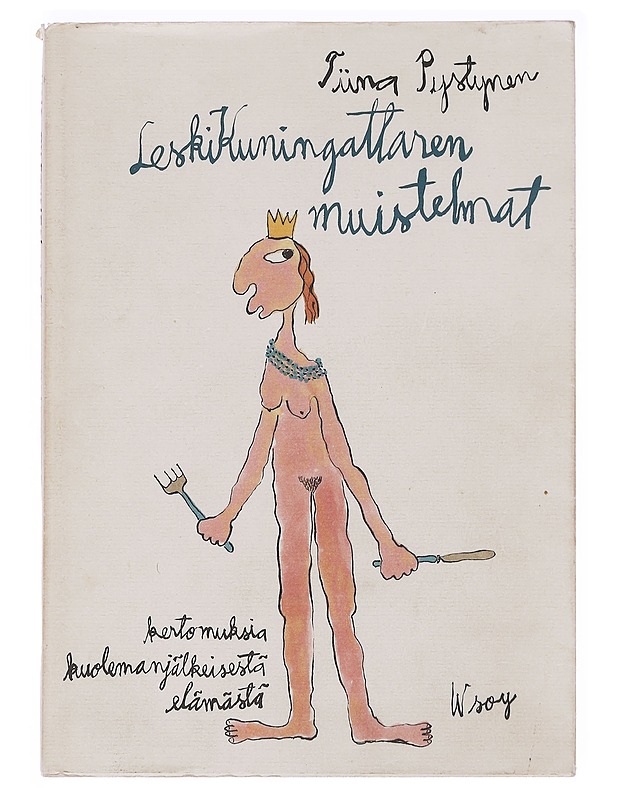 Tiina Pystynen
LeskiKuningattaren
muistelmat
kertomuksia
kuolemanjälkeisestä
elämästä
Wsoy